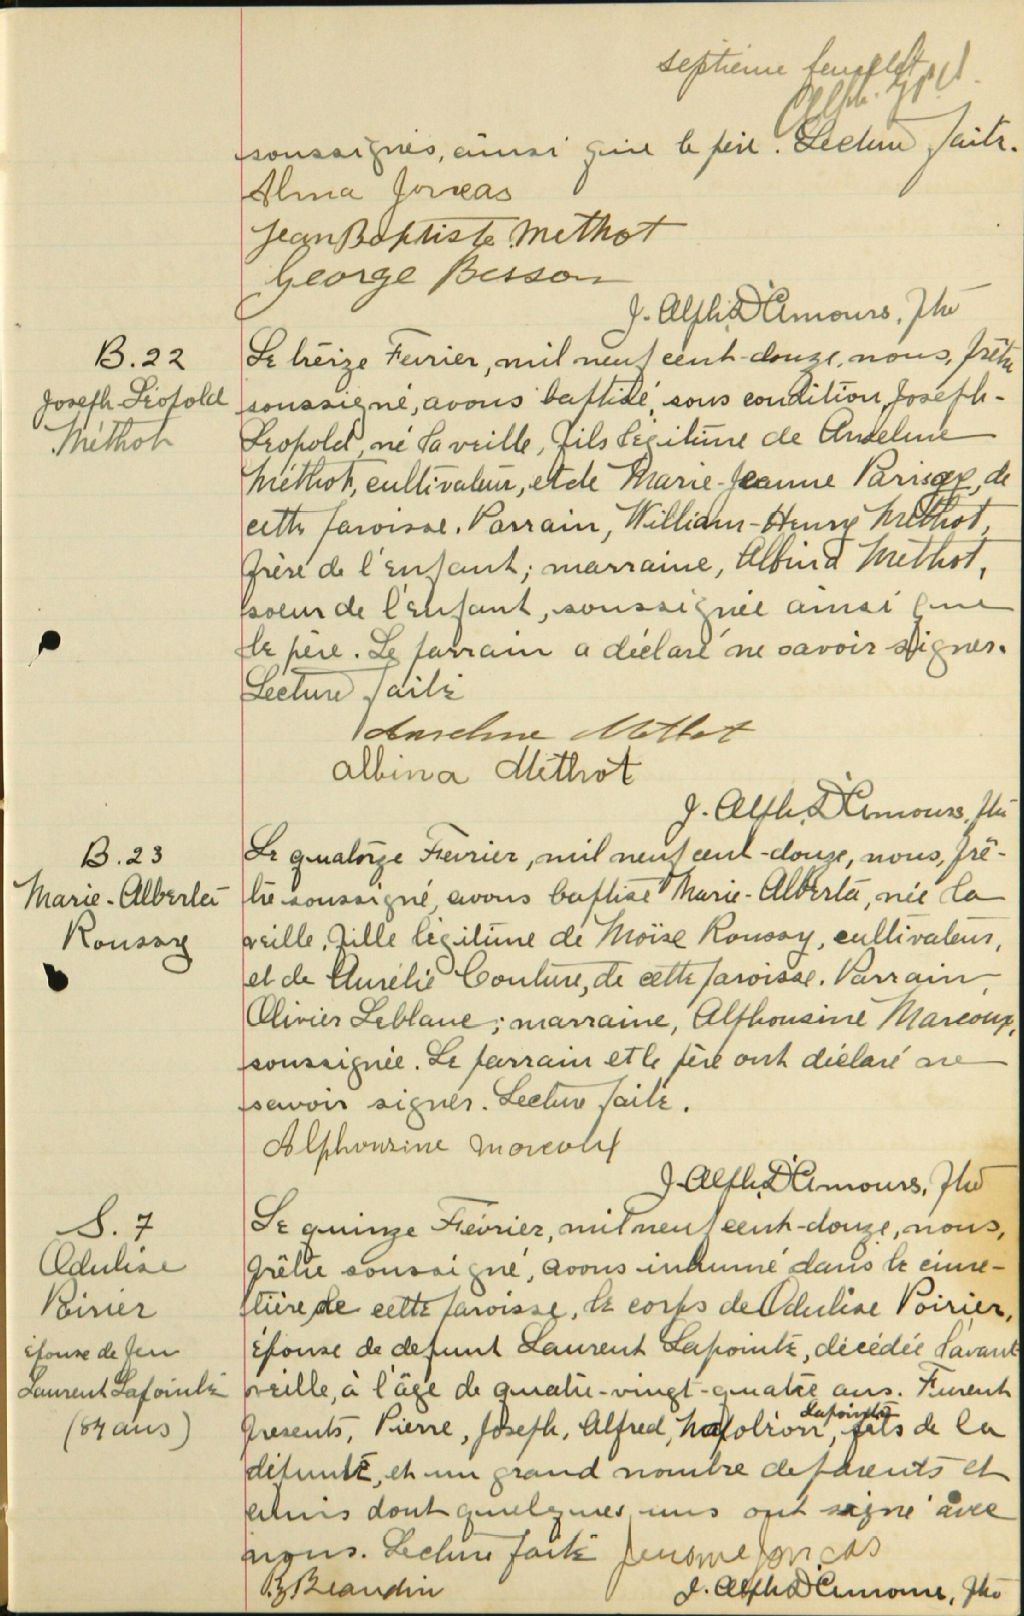 septième feuillet
soussignés, ainsi que le père. Lecture faite.
Alma Joncas
Jean Baptiste Methot
George Besson
J. Alph. D'Amours, Ptre
B. 22
Joseph-Léopold
Méthot
Le treize Février, mil neuf cent-douze, nous, prêtre
soussigné, avons baptisé, sous condition, Joseph-
Léopold, né la veille, fils légitime de Anselme
Méthot, cultivateur, et de Marie-Jeanne Parisé, de
cette paroisse. Parrain, William-Henry Méthot,
frère de l'enfant; marraine, Albina Méthot,
soeur de l'enfant, soussignée ainsi que
le père. Le parrain a déclaré ne savoir signer.
Lecture faite
Anselme Methot
Albina Méthot
J. Alph. D'Amours, Ptre
B. 23
Marie-Alberta
Roussy
Le quatorze Février, mil neuf cent-douze, nous, prê-
tre soussigné, avons baptisé Marie-Alberta, née la
veille, fille légitime de Moïse Roussy, cultivateur,
et de Aurélie Couture, de cette paroisse. Parrain,
Olivier Leblanc; marraine, Alphonsine Marcoux,
soussignée. Le parrain et le père ont déclaré ne
savoir signer. Lecture faite.
Alphonsine Marcoux
J. Alph. D'Amours, Ptre
S. 7
Odulise
Poirier
épouse de feu
Laurent Lapointe
(84 ans)
Le quinze Février, mil neuf cent-douze, nous,
prêtre soussigné, avons inhumé dans le cime-
tière de cette paroisse, le corps de Odulise Poirier,
épouse de defunt Laurent Lapointe, décédée l'avant
veille, à l'âge de quatre-vingt-quatre ans. Furent
présents, Pierre, Joseph, Alfred, Napoléon, Lapointe fils de la
défunte, et un grand nombre de parents et
amis dont quelques uns ont signé avec
nous. Lecture faite Jerome Joncas
Bz Beaudin
J. Alph. D'Amours, Ptre